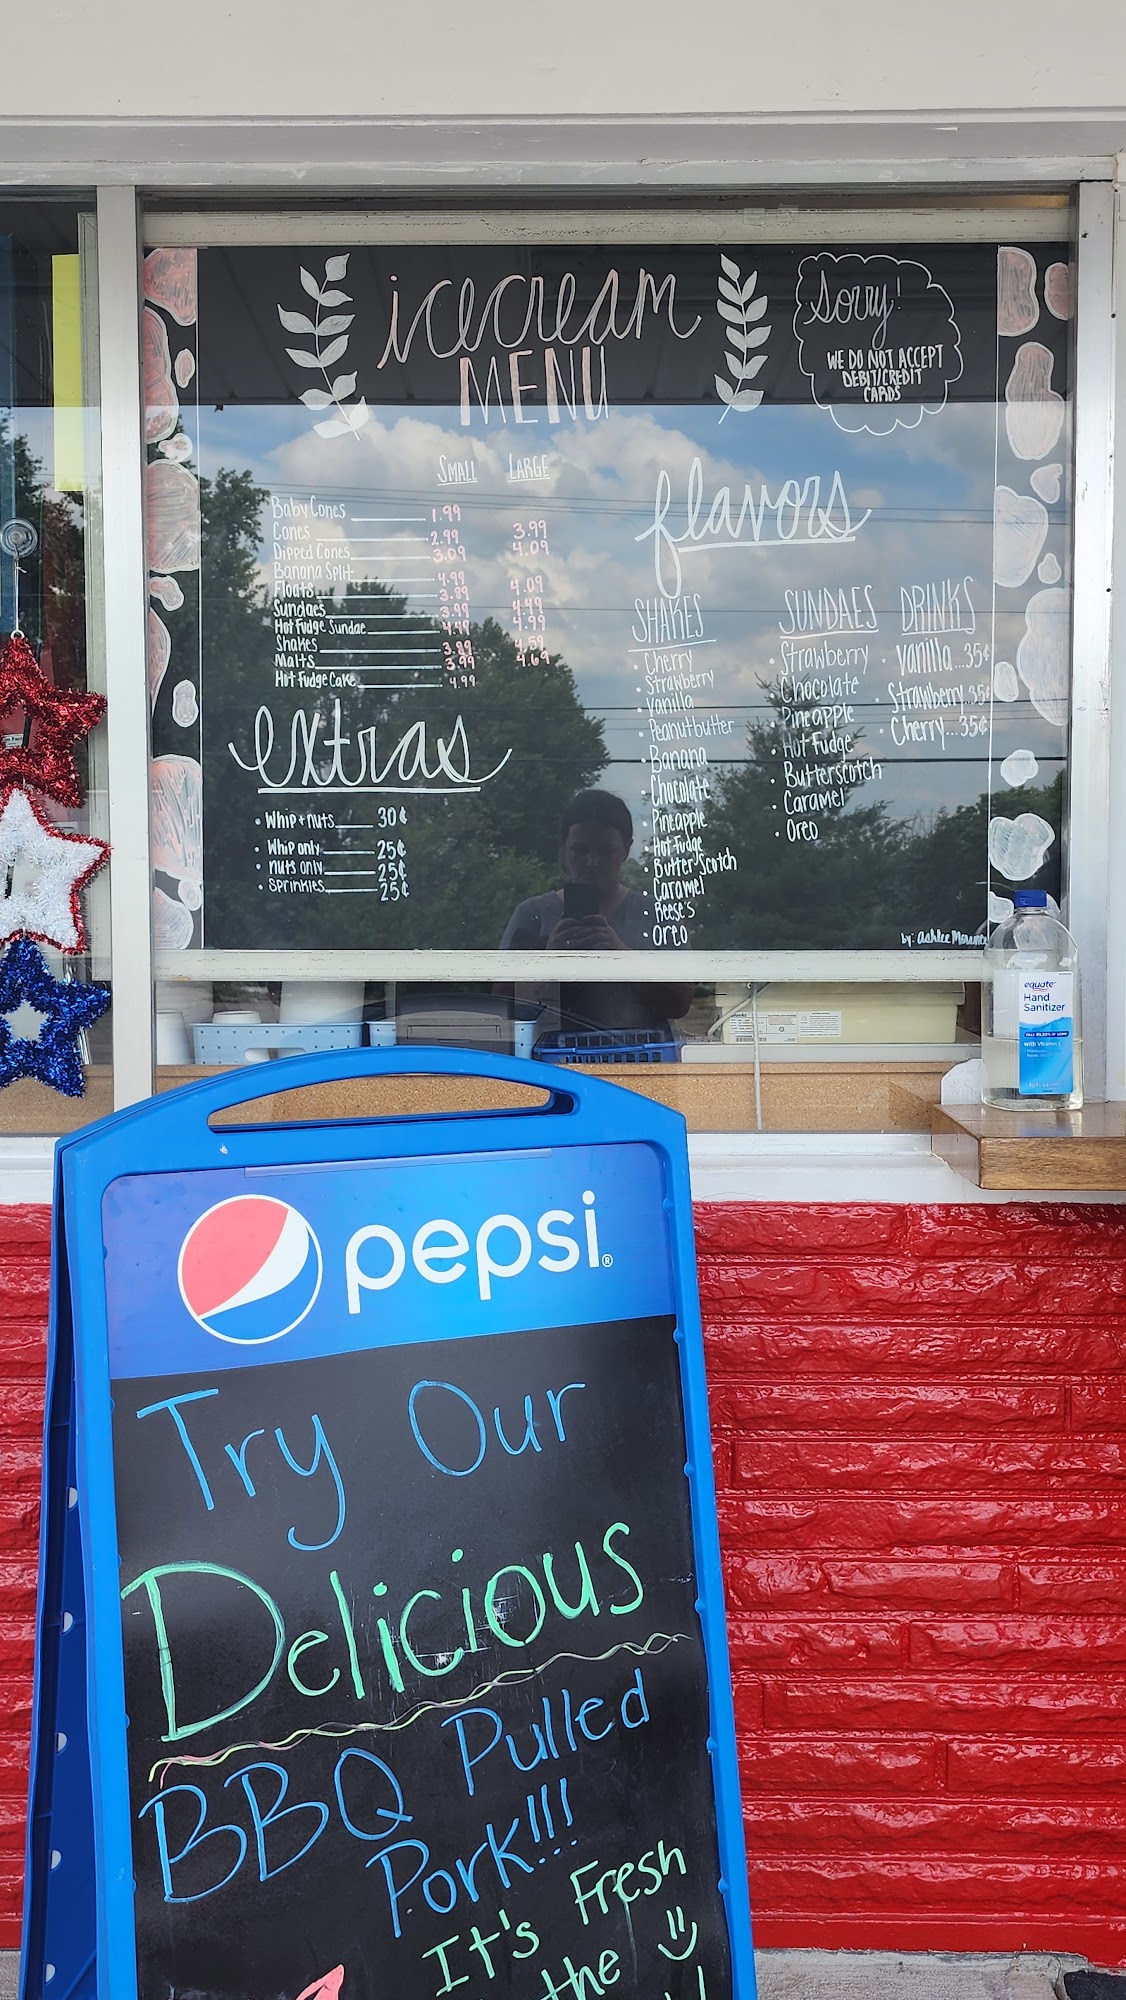 icecream
MENU
Sorry!
WE DO NOT ACCEPT
DEBIT/CREDIT
CARDS
SMALL LARGE
Baby Cones 1.99
Cones 2.99 3.99
Dipped Cones 3.09 4.09
Banana Split 4.99
Floats 3.89 4.09
Sundaes 3.99 4.49
Hot Fudge Sundae 4.49 4.99
Shakes 3.89 4.59
Malts 3.99 4.69
Hot Fudge Cake 4.99
extras
• Whip + nuts 30¢
• Whip only 25¢
• nuts only 25¢
• sprinkles 25¢
flavors
SHAKES
• Cherry
• Strawberry
• Vanilla
• Peanutbutter
• Banana
• Chocolate
• Pineapple
• Hot Fudge
• Butter Scotch
• Caramel
• Reese's
• Oreo
SUNDAES
• Strawberry
• Chocolate
• Pineapple
• Hot Fudge
• Butterscotch
• Caramel
• Oreo
DRINKS
• Vanilla...35¢
• Strawberry..35¢
• Cherry...35¢
by: Ashlee
equate
Hand
Sanitizer
pepsi®
Try Our
Delicious
BBQ Pulled
Pork!!!
It's Fresh
the